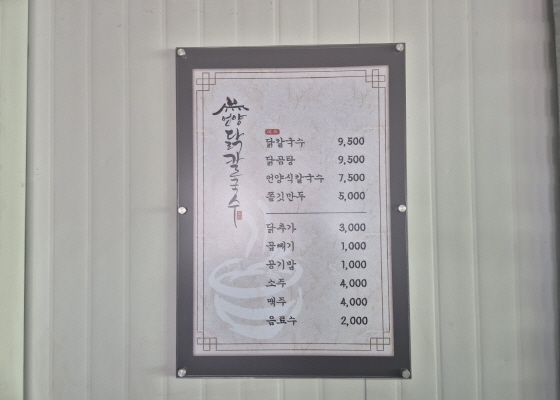 언양
닭칼국수
닭칼국수 9,500
닭곰탕 9,500
언양식칼국수 7,500
쫄깃만두 5,000
닭추가 3,000
곱빼기 1,000
공기밥 1,000
소주 4,000
맥주 4,000
음료수 2,000